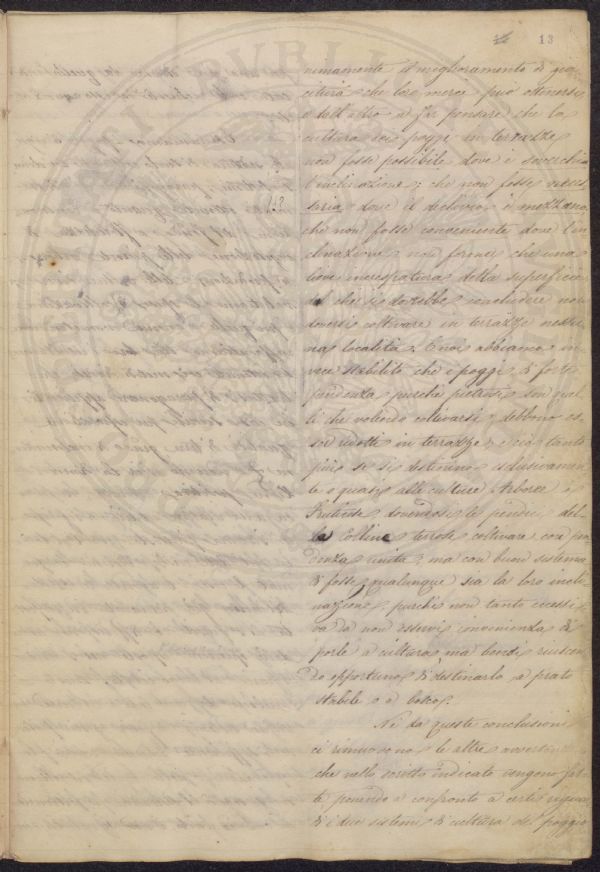 13
nimamente il miglioramento di gia
citura che loro mercè può ottenersi
e dell'altro a far pensare che la
cultura dei poggi in terrazze
non fosse possibile dove è soverchia
l'inclinazione; che non fosse neces
saria dove il declivio è mezzano,
che non fosse conveniente dove l'in
clinazione non formi che una
lieve increspatura della superficie
dal che si dovrebbe concludere non
doversi coltivare in terrazze nessu
na località. E noi abbiamo in
vece stabilito che i poggi di forte
pendenza purchè pietrosi son quel
li che volendo coltivarsi debbono es
ser ridotti in terrazze, e ciò tanto
più se si destinino esclusivamen
te o quasi alle culture Arboree e
Fruticose dovendosi le pendici del
le Colline terrose coltivare con pen
denza unita, ma con buon sistema
di fosse, qualunque sia la loro incli
nazione, purchè non tanto eccessi
va da non esservi convenienza di
porle a cultura, ma bensì riuscen
do opportuno di destinarle a prato
stabile o a bosco.
Nè da queste conclusioni
ci rimuovono le altre avvertenze
che nello scritto indicato vengono fat
te ponendo a confronto a certi riguardi
di i due sistemi di cultura del poggio